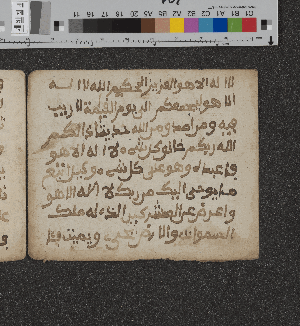 لا اله الا هو العزيز الحكيم الله لا اله
الا هو ليجمعنكم الى يوم القيمة لا ريب
فيه ومن اصدق من الله حديثا ذلكم
الله ربكم خالق كل شى لا اله الا هو
فاعبدوه وهو على كل شى وكيل اتبع
ما يوحى اليك من ربك لا اله الا هو
واعرض عن المشركين الذى له ملك
السموات والارض يحى ويميت